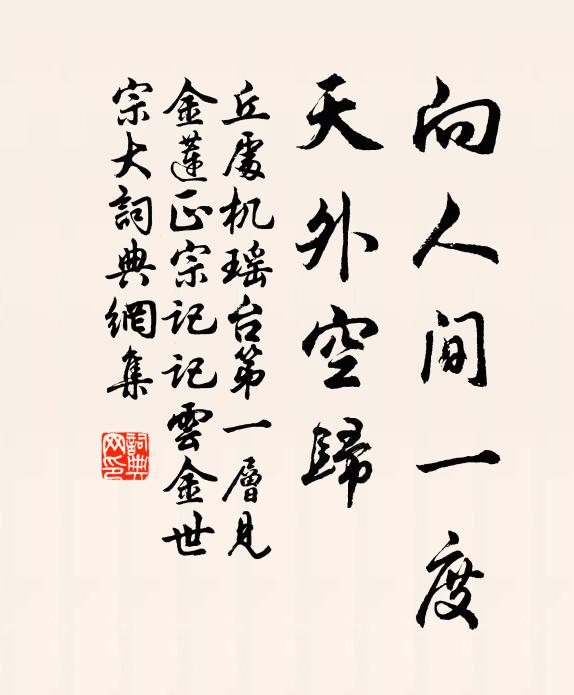 向人间一度
天外空歸
丘處机瑶台第一層見
金蓮正宗记记雲金世
宗大詞典網集
詞典网印